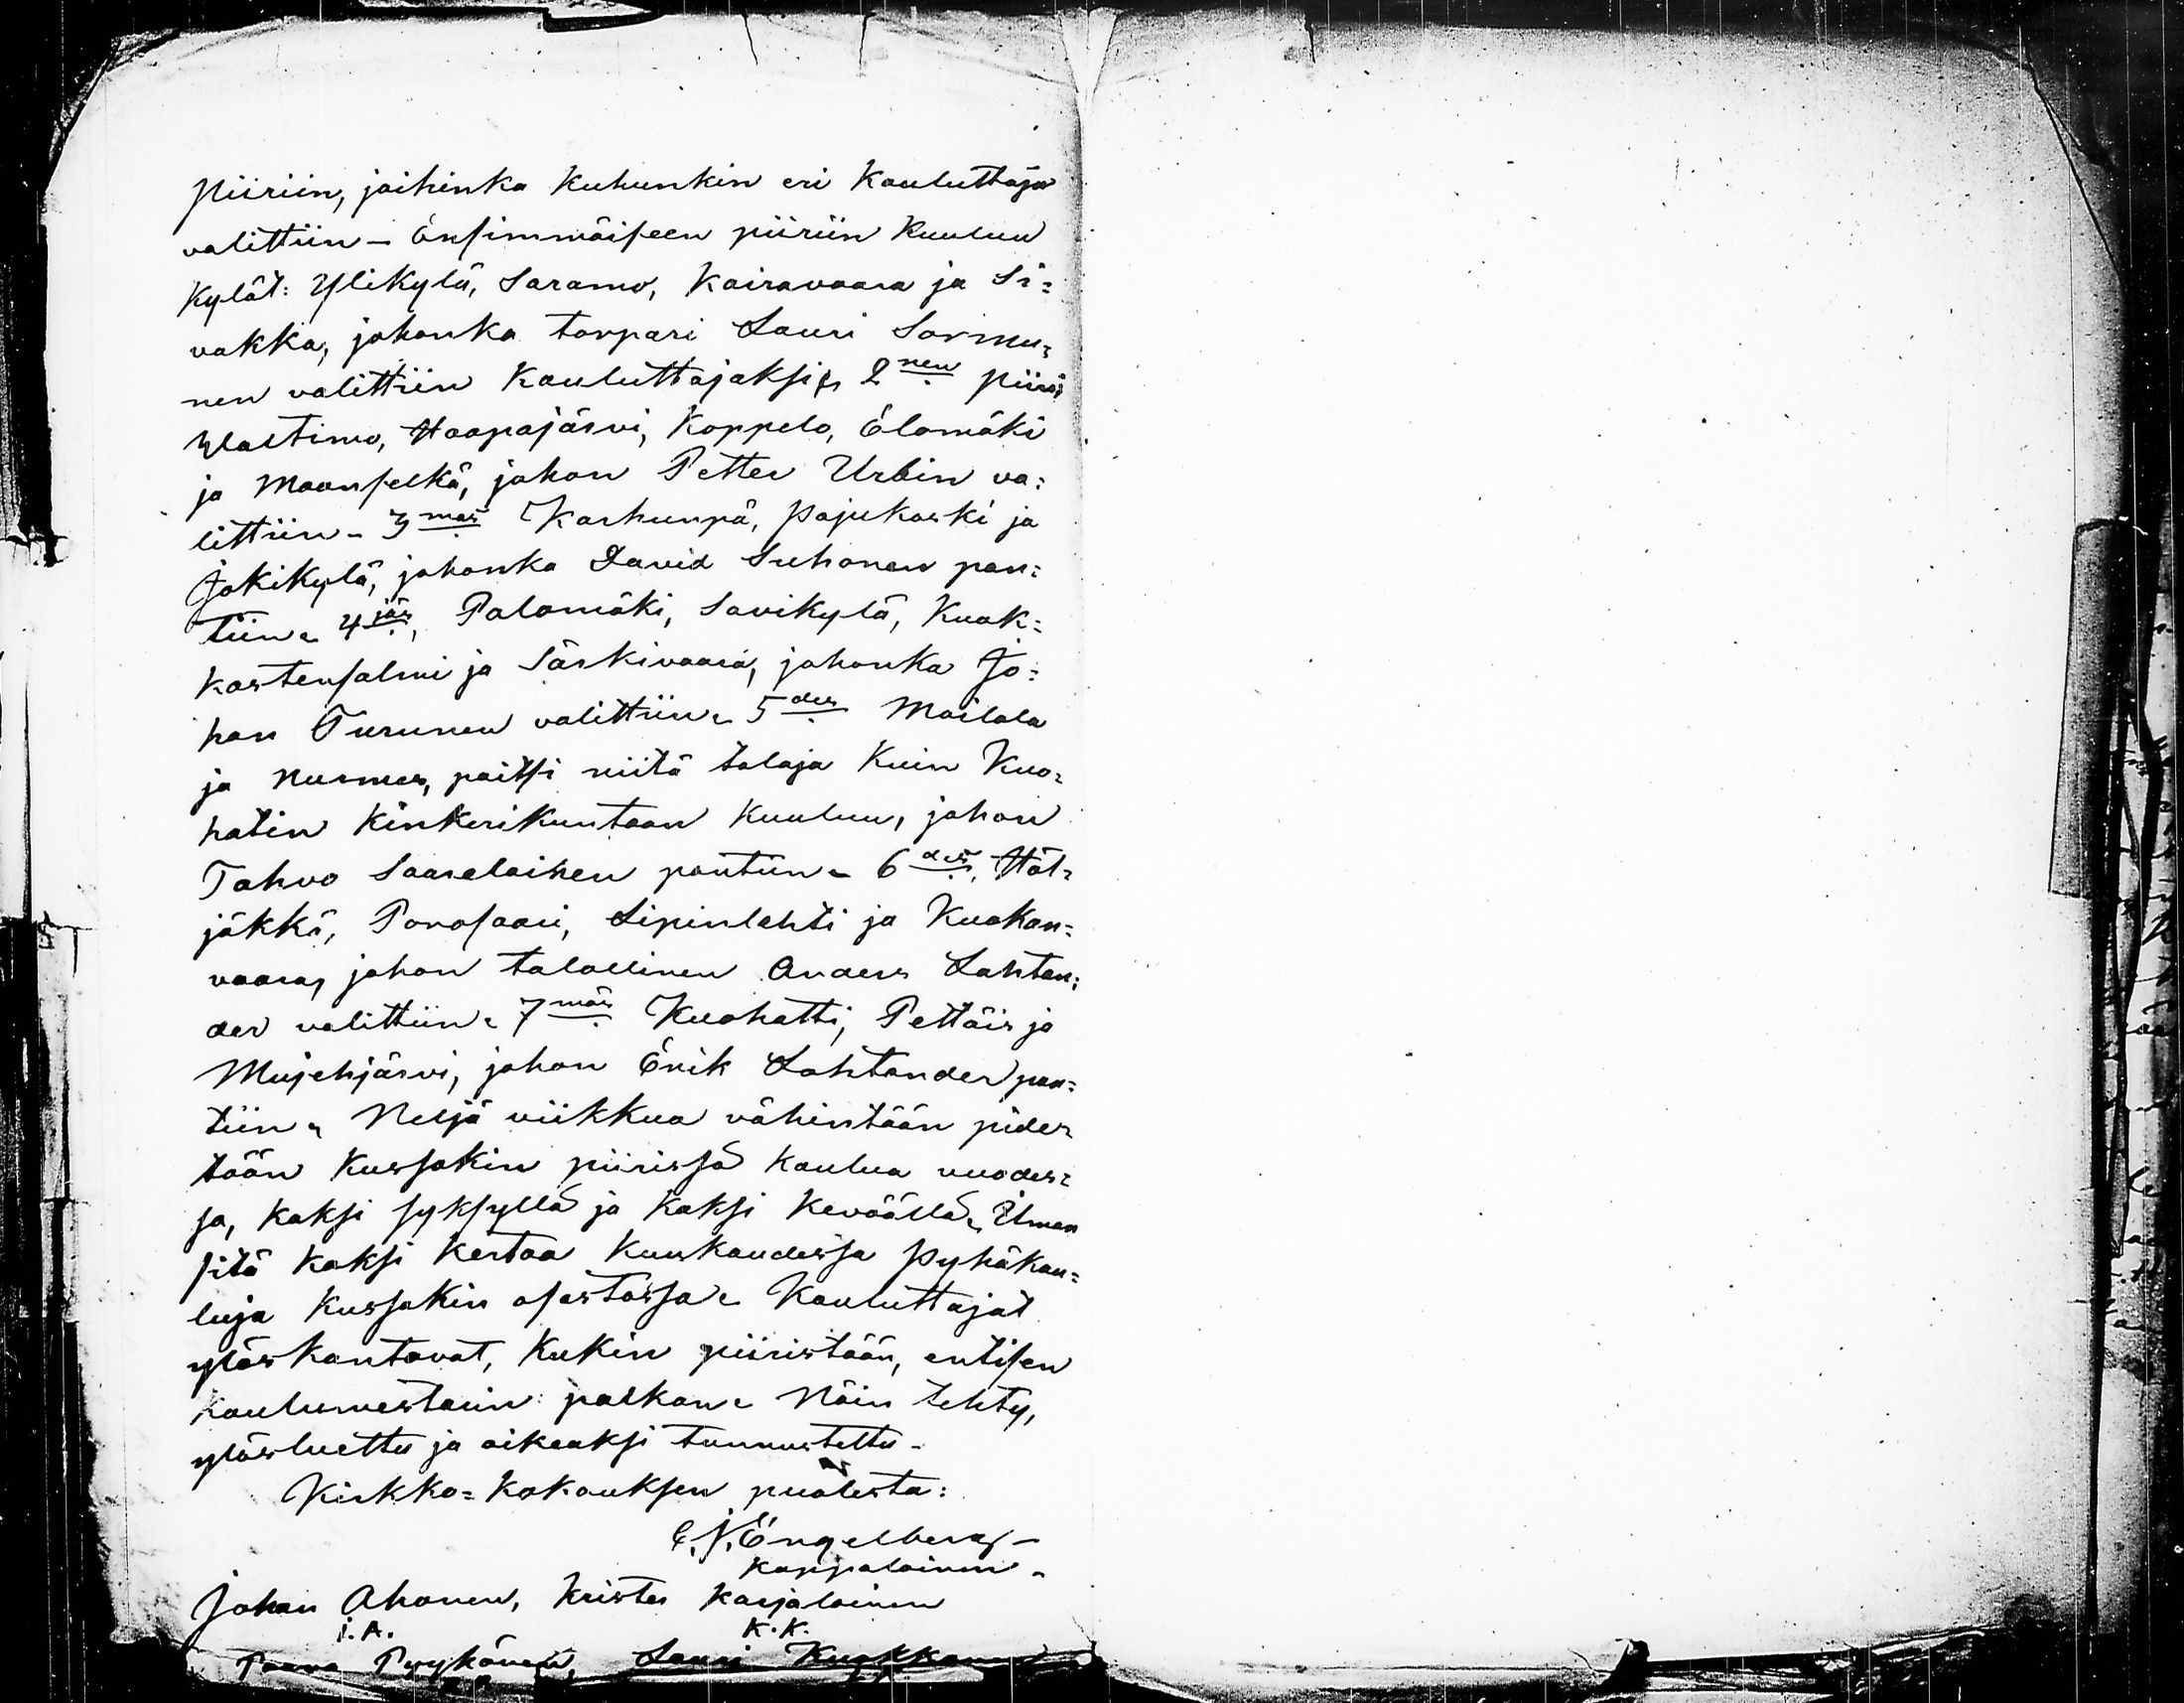 piiriin, joihinka kuhunkin eri kouluttaja
valittiin – Ensimmäiseen piiriin kuuluu
kylät: Ylikylä, Saramo, Kairavaara ja Si=
vakka, johonka torpari Lauri Sormu=
nen valittiin kouluttajaksi, 2nen piiri
Waltimo, Haapajärvi, Koppelo, Elomäki
ja Maanselkä, johon Petter Urbin va=
littiin – 3mas Karhunpä, Pajukoski ja
Jokikylä, johonka David Suhonen pan=
tiin – 4jäs, Palomäki, Savikylä, Kuok=
kastensalmi ja Särkivaara, johonka Jo=
han Turunen valittiin – 5des Mailala
ja Nurmes, paitsi niitä taloja kuin Kuo=
hatin kinkerikuntaan kuuluu, johon
Tahvo Saarelainen pantiin – 6des, Höl=
jäkkä, Porosaari, Lipinlahti ja Kuokan=
vaara, johon talollinen Anders Lahtan=
der valittiin – 7mäs Kuohatti, Pettäis ja
Mujehjärvi, johon Erik Lahtander pan=
tiin – Neljä viikkua vähintään pide=
tään kussakin piirissä koulua vuodes=
sa, kaksi syksyllä ja kaksi keväällä – Ilman
sitä kaksi kertaa kuukaudessa pyhäkou=
luja kussakin osastossa – Kouluttajat
ylöskantavat, kukin piiristään, entisen
koulumestarin palkan – Näin tehty,
ylösluettu ja oikeaksi tunnustettu –
Kirkko=kokouksen puolesta:
E. J. Engelberg –
kappalainen –
Johan Ahonen, Krister Karjalainen
J. A. K. K.
Paavo Pyykönen, Lauri Kuokkanen